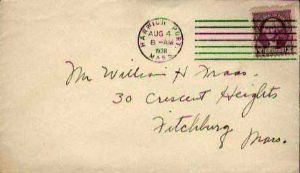 HARWICH PORT
AUG 4
8-AM
MASS.
Mr William H Maas.
30 Crescent Heights
Fitchburg
Mass.